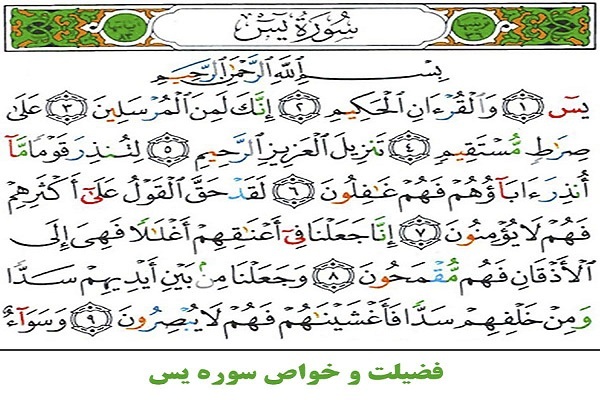 سُورَةُ يسٓ
بِسْمِ ٱللَّهِ ٱلرَّحْمَٰنِ ٱلرَّحِيمِ
يسٓ ١ وَٱلْقُرْءَانِ ٱلْحَكِيمِ ٢ إِنَّكَ لَمِنَ ٱلْمُرْسَلِينَ ٣ عَلَىٰ
صِرَٰطٍ مُّسْتَقِيمٍ ٤ تَنزِيلَ ٱلْعَزِيزِ ٱلرَّحِيمِ ٥ لِتُنذِرَ قَوْمًا مَّآ
أُنذِرَ ءَابَآؤُهُمْ فَهُمْ غَٰفِلُونَ ٦ لَقَدْ حَقَّ ٱلْقَوْلُ عَلَىٰٓ أَكْثَرِهِمْ
فَهُمْ لَا يُؤْمِنُونَ ٧ إِنَّا جَعَلْنَا فِىٓ أَعْنَٰقِهِمْ أَغْلَٰلًا فَهِىَ إِلَى
ٱلْأَذْقَانِ فَهُم مُّقْمَحُونَ ٨ وَجَعَلْنَا مِنۢ بَيْنِ أَيْدِيهِمْ سَدًّا
وَمِنْ خَلْفِهِمْ سَدًّا فَأَغْشَيْنَٰهُمْ فَهُمْ لَا يُبْصِرُونَ ٩ وَسَوَآءٌ
فضیلت و خواص سوره یس